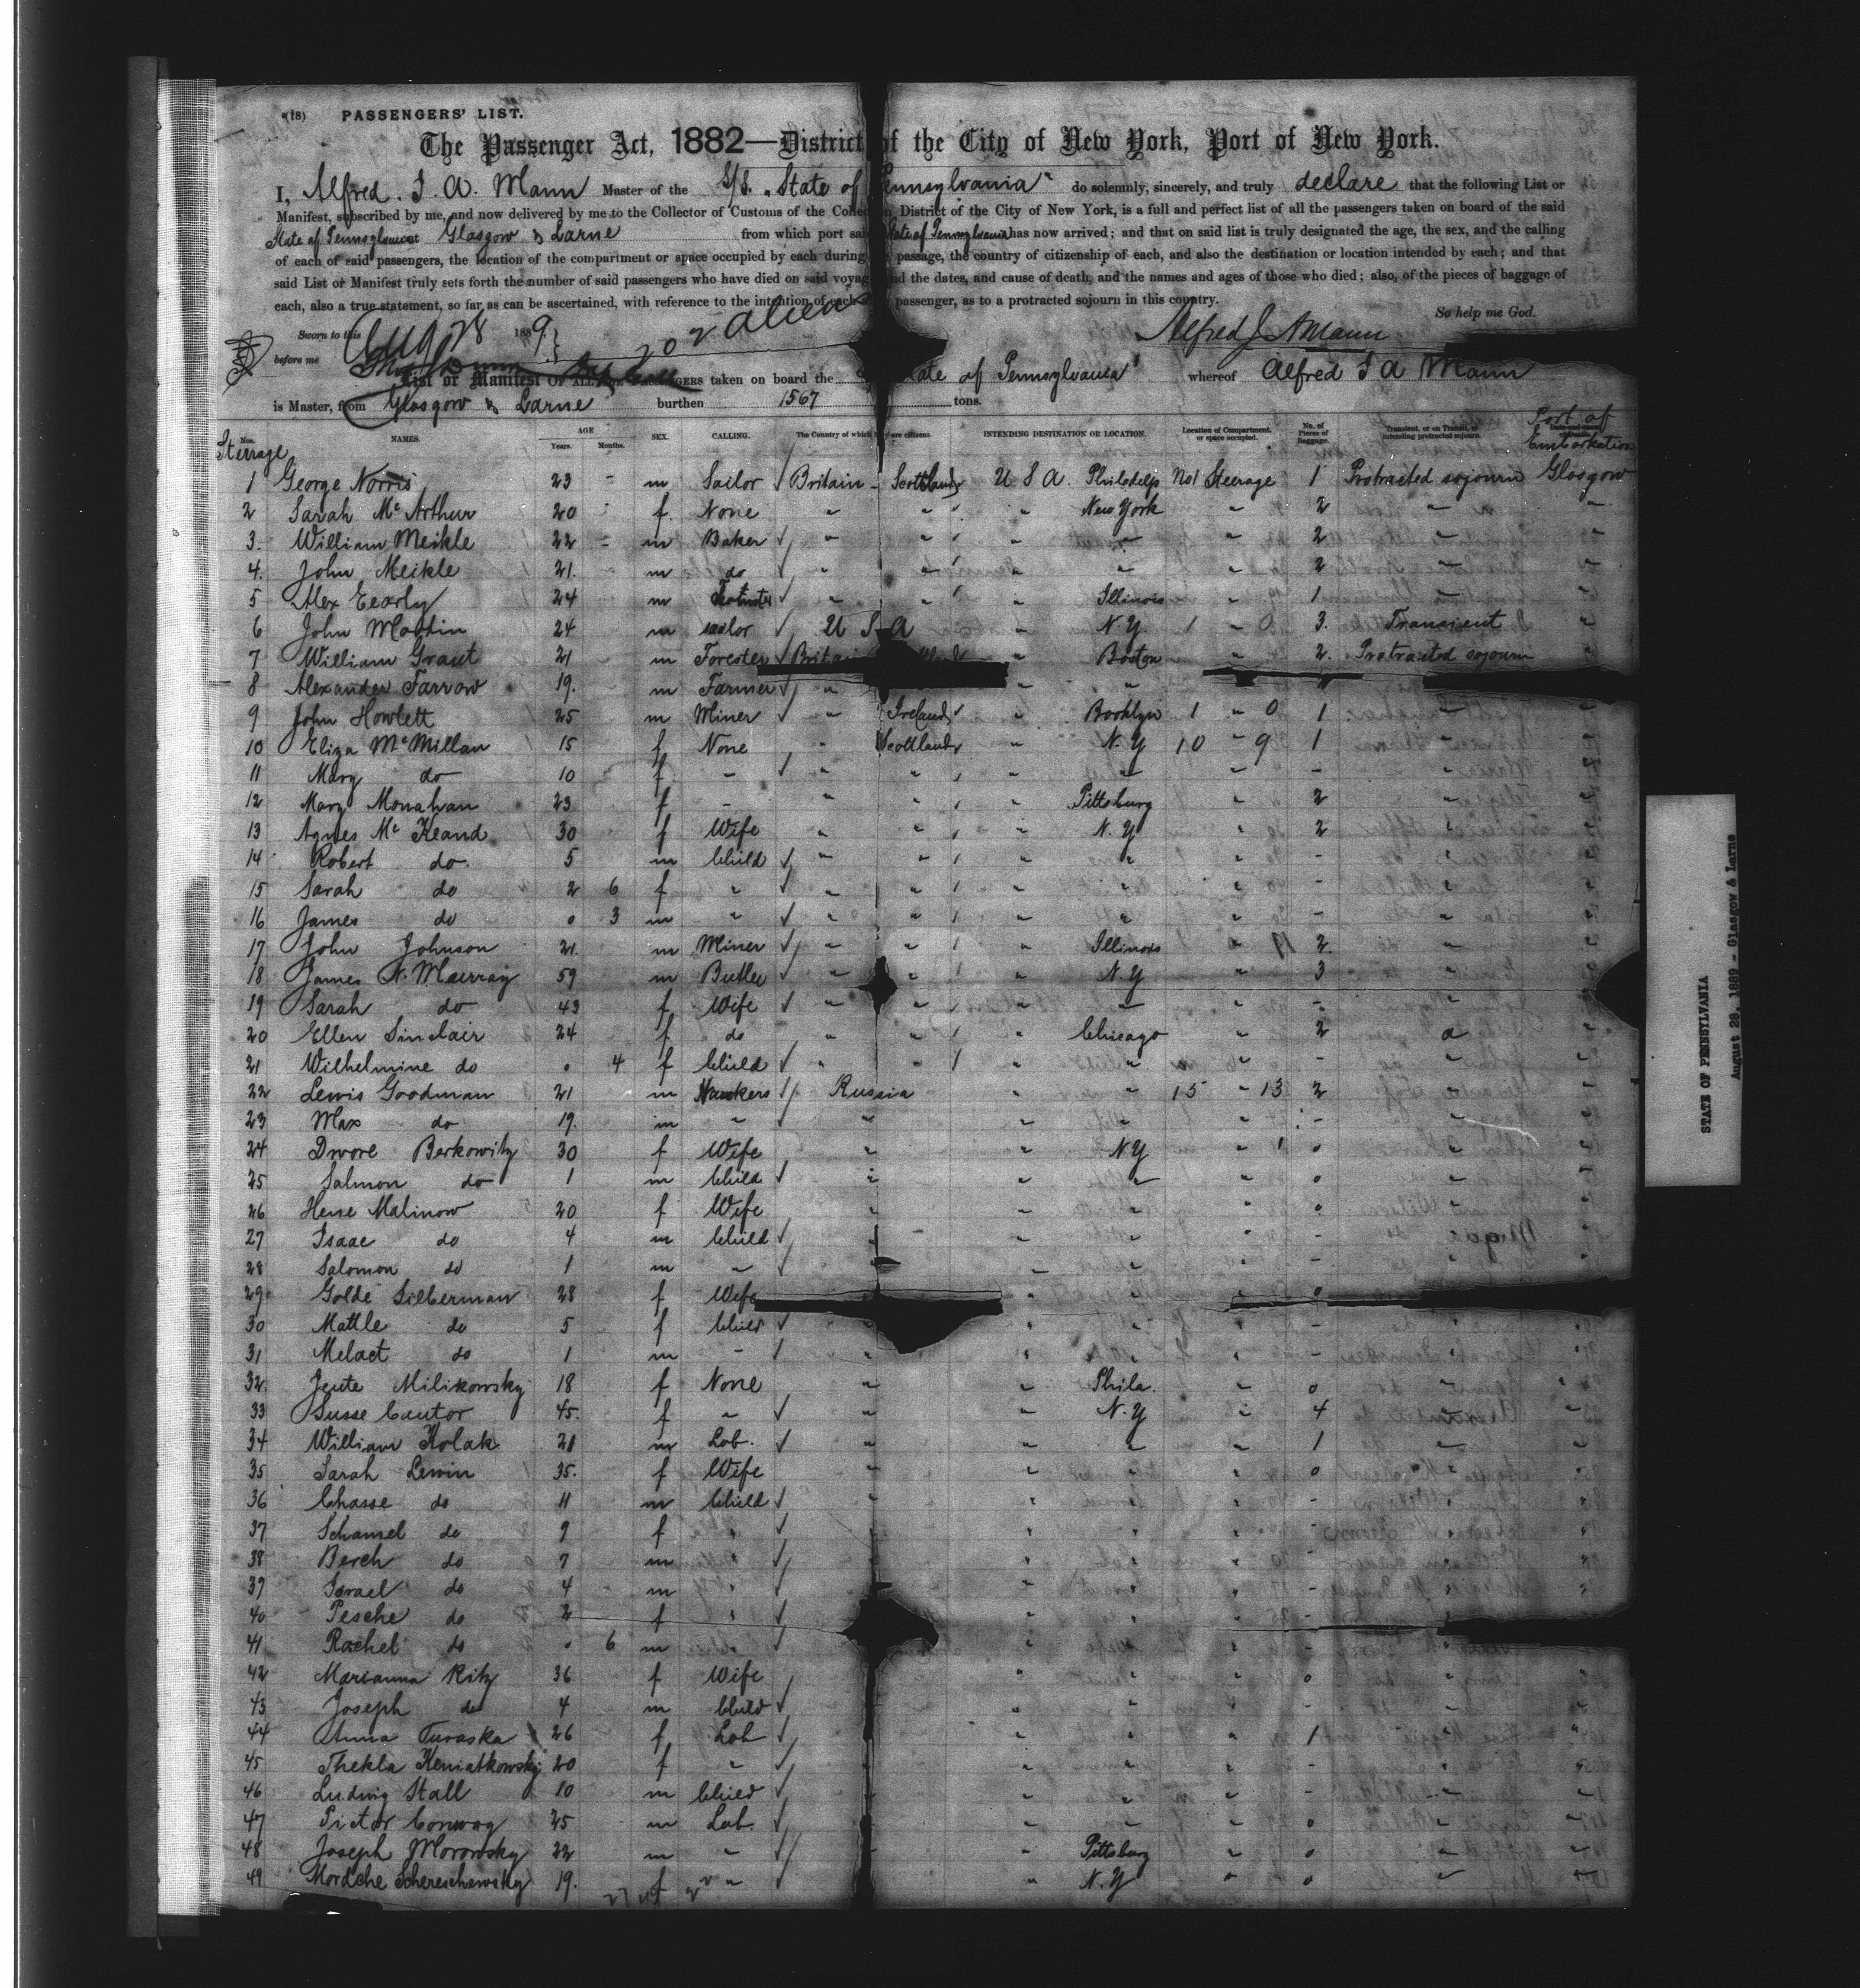 (18) PASSENGERS' LIST.
The Passenger Act, 1882—District of the City of New York, Port of New York.
I, Alfred. J. A. Mann Master of the S/S. "State of Pennsylvania" do solemnly, sincerely, and truly declare that the following List or
Manifest, subscribed by me, and now delivered by me to the Collector of Customs of the Collection District of the City of New York, is a full and perfect list of all the passengers taken on board of the said
State of Pennsylvania at Glasgow & Larne from which port said State of Pennsylvania has now arrived; and that on said list is truly designated the age, the sex, and the calling
of each of said passengers, the location of the compartment or space occupied by each during passage, the country of citizenship of each, and also the destination or location intended by each; and that
said List or Manifest truly sets forth the number of said passengers who have died on said voyage and the dates, and cause of death, and the names and ages of those who died; also, of the pieces of baggage of
each, also a true statement, so far as can be ascertained, with reference to the intention of each passenger, as to a protracted sojourn in this country.
So help me God.
Sworn to this Aug 28 1889
before me
202 Aliens
Alfred J A Mann
List or Manifest OF ALL THE PASSENGERS taken on board the State of Pennsylvania whereof Alfred J A Mann
is Master, from Glasgow & Larne burthen 1567 tons.
Nos. NAMES. AGE Years. Months. SEX. CALLING. The Country of which they are citizens INTENDING DESTINATION OR LOCATION. Location of Compartment, or space occupied. No. of Pieces of Baggage. Transient, or on Transit, or intending protracted sojourn. Port of Embarkation
Steerage
1 George Norris 23 - m Sailor Britain - Scotland U S A. Philadelp No1 Steerage 1 Protracted sojourn Glasgow
2 Sarah McArthur 20 f. None " " " New York " 2 " "
3. William Meikle 22 - m Baker " " " " " 2 " "
4. John Meikle 21. m do " " " " " 2 " "
5 Alex Eearly 24 m " " " Illinois " 1 " "
6 John Martin 24 m sailor U S A " N.Y. 1 - 0 3. Transient "
7 William Grant 21 m Forester Britain " Boston " 2. Protracted sojourn
8 Alexander Farrow 19. m Farmer " " "
9 John Howlett 25 m Miner " Ireland " Booklyn 1 - 0 1 " "
10 Eliza McMillan 15 f None " Scotland " N.Y 10 - 9 1 " "
11 Mary do 10 f - " " " " " - " "
12 Mary Monahan 23 f - " " " Pittsburg " 2 " "
13 Agnes Mc Keand 30 f Wife " " " N.Y " 2 " "
14 Robert do. 5 m Child " " " " " - " "
15 Sarah do 2 6 f " " " " " " - " "
16 James do 0 3 m " " " " " " - " "
17 John Johnson 21. m Miner " " " Illinois " 2. " "
18 James N. Murray 59 m Butler " " " N.Y " 3 " "
19 Sarah do 43 f Wife " " " " " - " "
20 Ellen Sinclair 24 f do " " " Chicago " 2 " "
21 Wilhelmine do 0 4 f Child " " " " - " "
22 Lewis Goodman 21 m Hawkers Russia " " 15 - 13 2 " "
23 Max do 19. m " " " " " - " "
24 Dwore Berkowitz 30 f Wife " " NY " 0 " "
25 Salmon do 1 m Child " " " " 0 " "
26 Hene Malinow 20 f Wife " " " " 0 " "
27 Isaac do 4 m Child " " " " - " "
28 Salomon do 1 m " " " " " - " "
29 Golde Silberman 28 f Wife " " " 0 "
30 Matlle do 5 f Child " " " - " "
31 Melact do 1 m - " " " " - " "
32. Jeute Milikowsky 18 f None " " Phila. " 0 " "
33 Susse Cantor 45. f " " " N.Y " 4 " "
34 William Kolak 21 m Lab. " " " " 1 " "
35 Sarah Lewin 35. f Wife " " " " 0 " "
36 Chasse do 11 m Child " " " " - " "
37 Schamel do 9 f " " " " - " "
38 Berch do 7 m " " " " - " "
39 Israel do 4 m " " " " - " "
40 Pesche do 2 f " " " " - " "
41 Rachel do 0 6 m " " " - "
42 Marianna Ritz 36 f Wife " " " 0 " "
43 Joseph do 4 m Child " " " - " "
44 Anna Turaska 26 f Lab " " " 1 " "
45 Thekla Keniatkowsky 20 f " " " " - " "
46 Ludwig Stall 10 m Child " " " - " "
47 Pictor Conway 25 m Lab. " " " 0 " "
48 Joseph Morowsky 22 m " " Pittsburg " 0 " "
49 Mordche Schereschewsky 19. f " " N.Y " 0 " "
STATE OF PENNSYLVANIA
August 28, 1889 - Glasgow & Larne